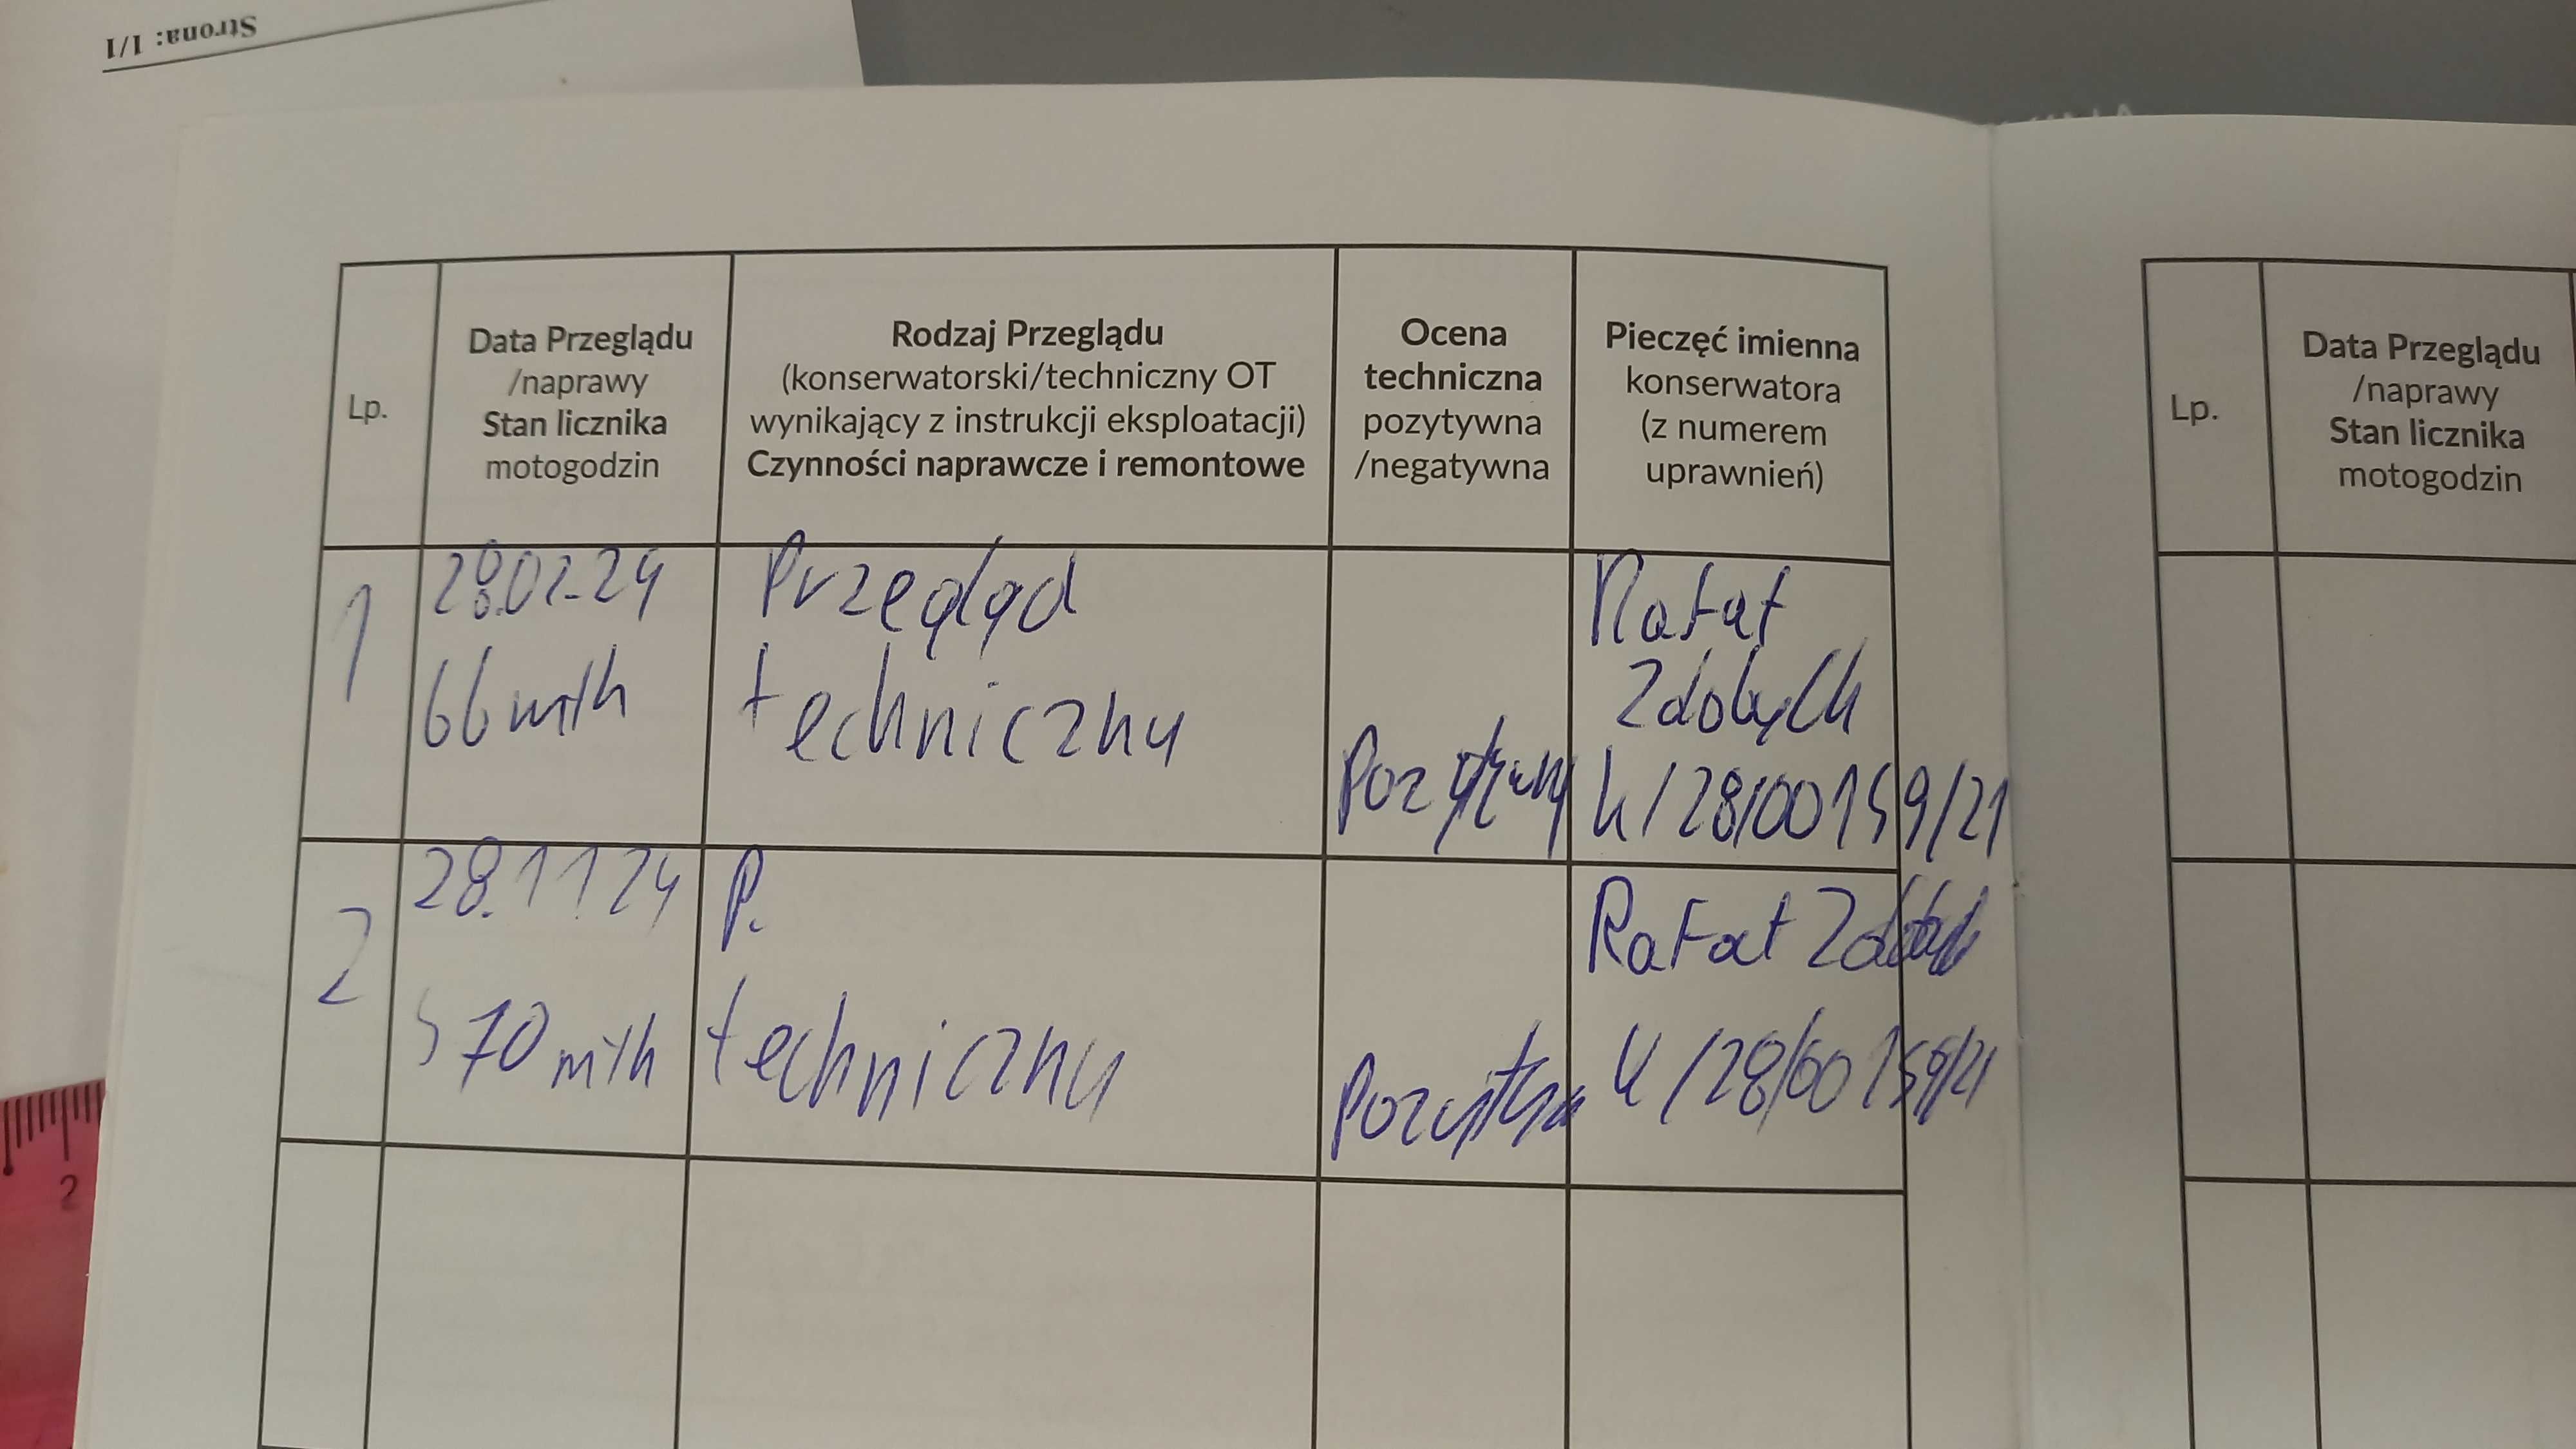 Strona: 1/1
Lp.
Data Przeglądu
/naprawy
Stan licznika
motogodzin
Rodzaj Przeglądu
(konserwatorski/techniczny OT
wynikający z instrukcji eksploatacji)
Czynności naprawcze i remontowe
Ocena
techniczna
pozytywna
/negatywna
Pieczęć imienna
konserwatora
(z numerem
uprawnień)
1
28.02.24
66 mth
Przegląd
techniczny
Pozytywny
Rafał
Zdobych
k/28/00159/21
2
28.11.24
570 mth
P.
techniczny
Rafał
k/28/00159/21
Lp.
Data Przeglądu
/naprawy
Stan licznika
motogodzin
2